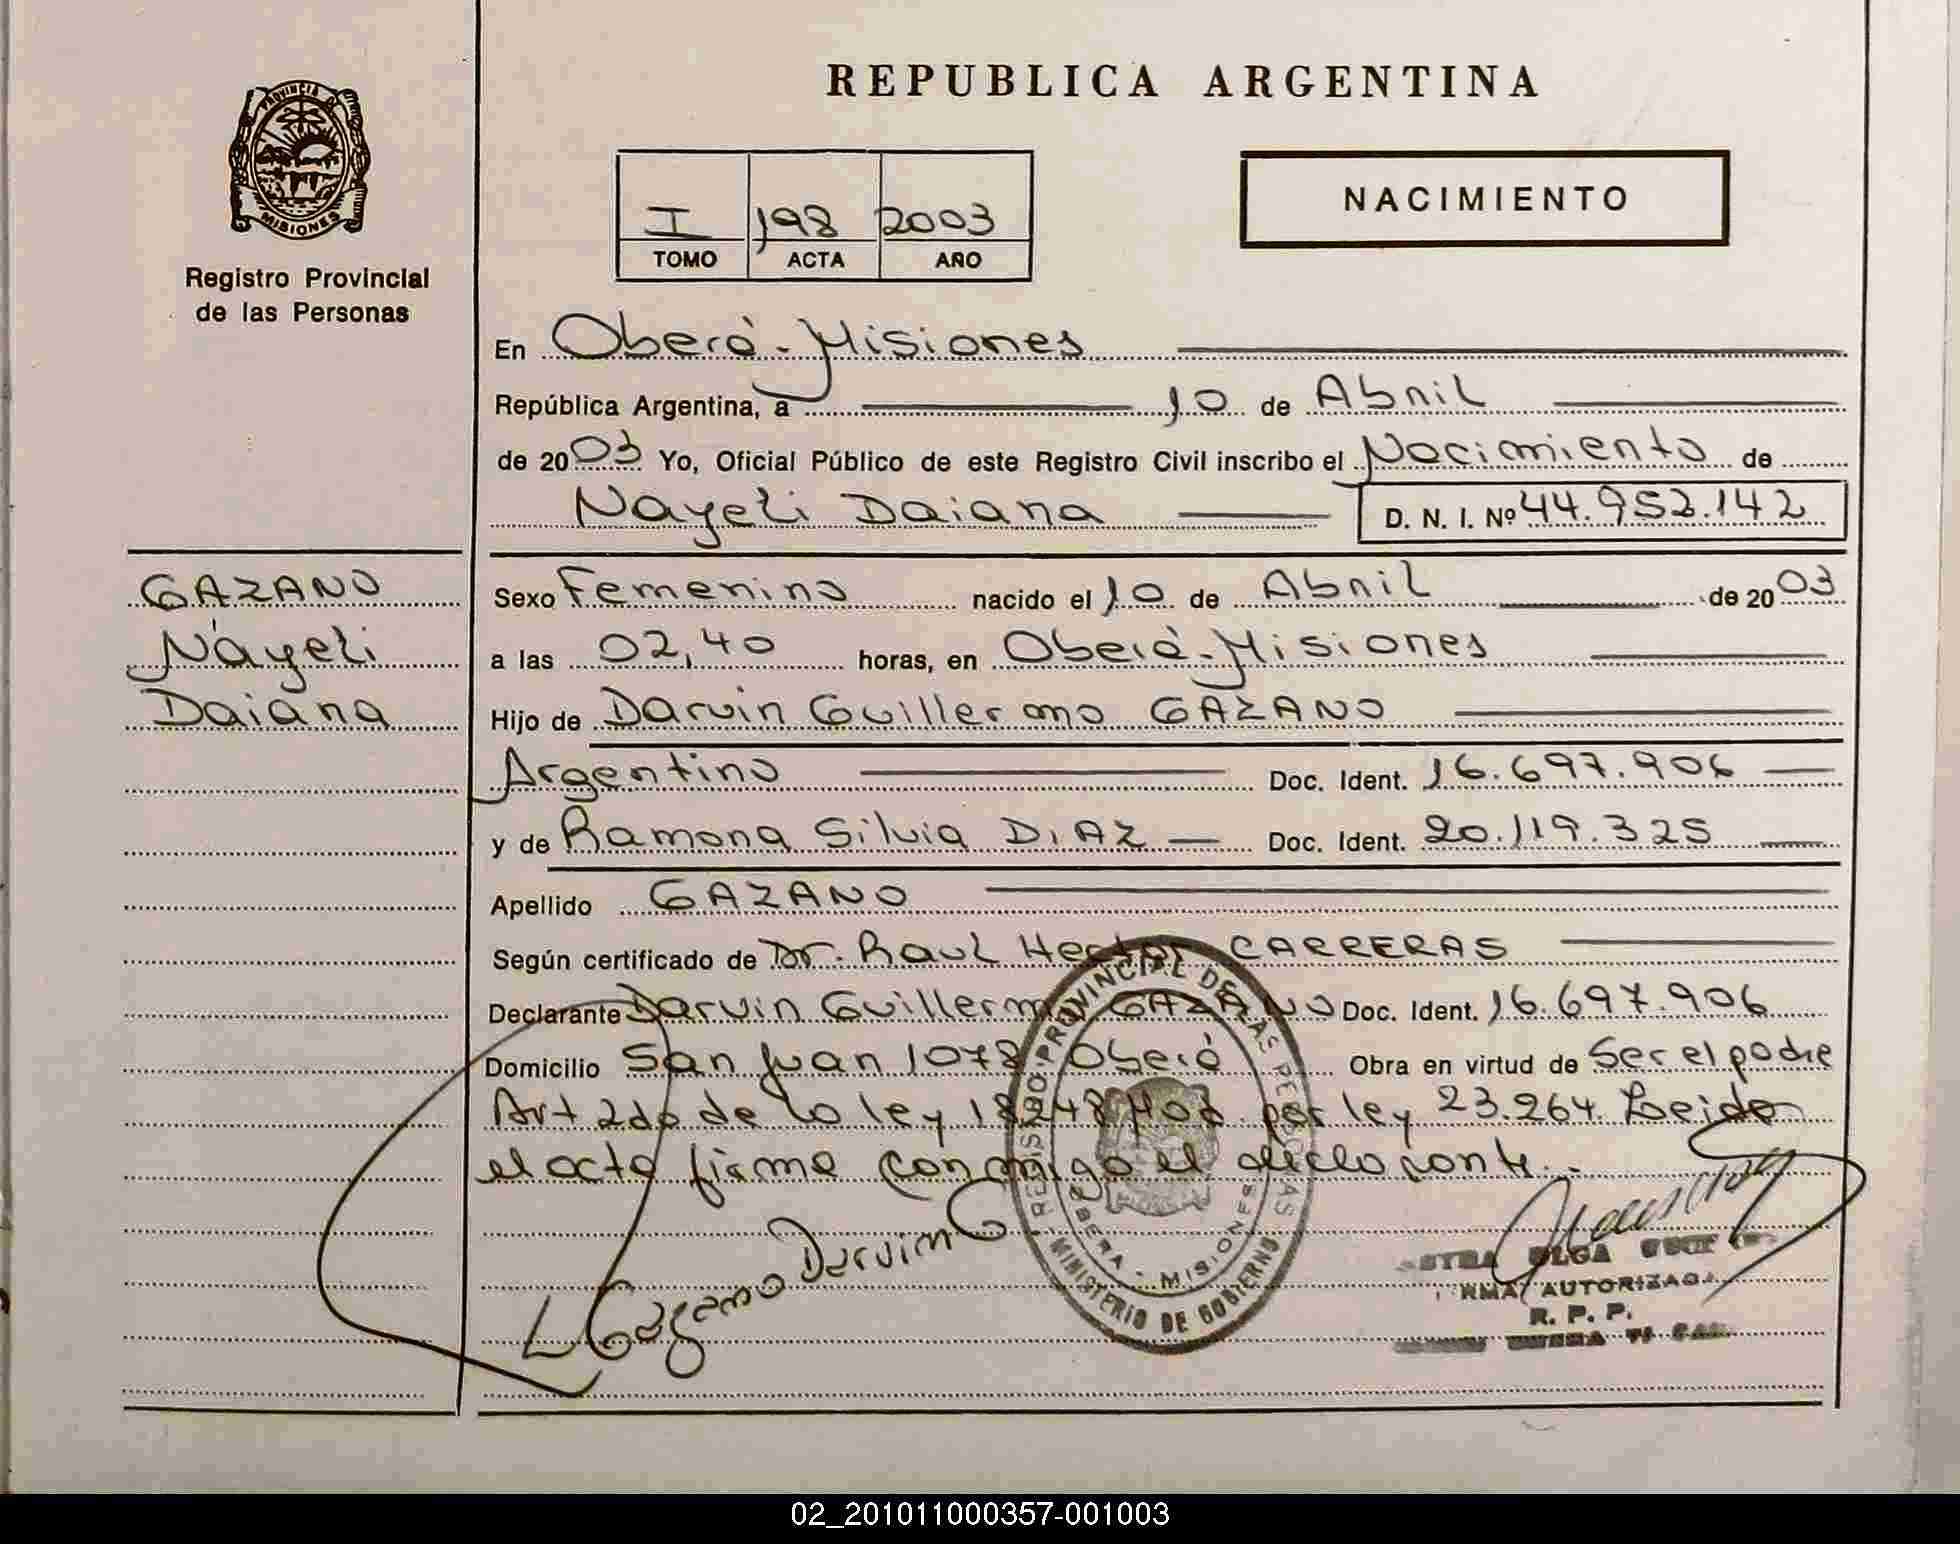 PROVINCIA DE
MISIONES
Registro Provincial
de las Personas
REPUBLICA ARGENTINA
I 198 2003
TOMO ACTA AÑO
NACIMIENTO
En Oberá - Misiones
República Argentina, a 10 de Abril
de 2003 Yo, Oficial Público de este Registro Civil inscribo el Nacimiento de
Nayeli Daiana D. N. I. Nº 44.952.142
GAZANO
Nayeli
Daiana
Sexo Femenino nacido el 10 de Abril de 2003
a las 02,40 horas, en Oberá - Misiones
Hijo de Darvin Guillermo GAZANO
Argentino Doc. Ident. 16.697.906
y de Ramona Silvia DIAZ Doc. Ident. 20.119.325
Apellido GAZANO
Según certificado de Dr. Raul Hector CARRERAS
Declarante Darvin Guillermo GAZANO Doc. Ident. 16.697.906
Domicilio San Juan 1078 Oberá Obra en virtud de Ser el padre
Art 2do de la ley 18248 Mod. por ley 23.264. Leida
el acta firma conmigo el declarante.
Gazano Darvin G
REGISTRO PROVINCIAL DE LAS PERSONAS
OBERA - MISIONES
MINISTERIO DE GOBIERNO
OLGA
AUTORIZADA
R. P. P.
02_201011000357-001003